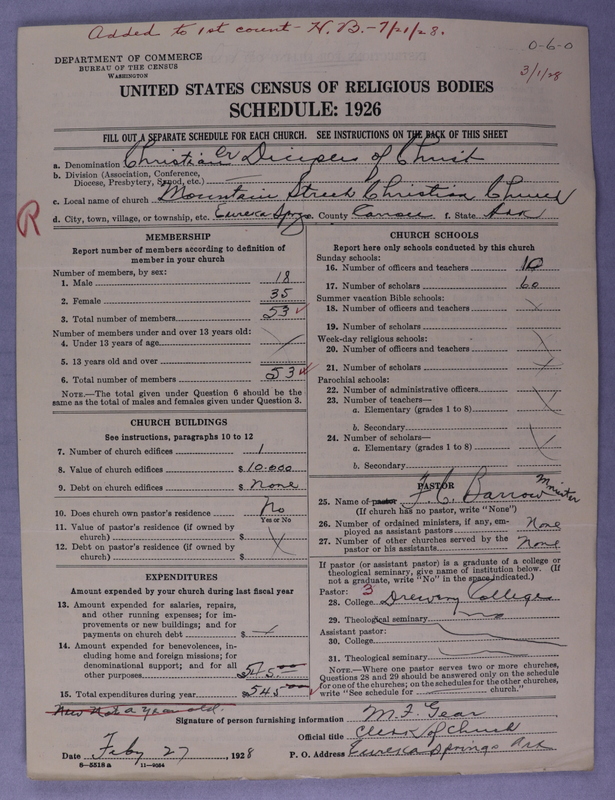 Added to 1st count - H. B. - 7/21/28.
0-6-0
3/1/28
DEPARTMENT OF COMMERCE
BUREAU OF THE CENSUS
WASHINGTON
UNITED STATES CENSUS OF RELIGIOUS BODIES
SCHEDULE: 1926
FILL OUT A SEPARATE SCHEDULE FOR EACH CHURCH. SEE INSTRUCTIONS ON THE BACK OF THIS SHEET
a. Denomination Christian or Dicipels of Christ
b. Division (Association, Conference,
Diocese, Presbytery, Synod, etc.)
c. Local name of church Mountain Street Christian Church
d. City, town, village, or township, etc. Eureka Springs e. County Carroll f. State Ark
R
MEMBERSHIP
Report number of members according to definition of
member in your church
Number of members, by sex:
1. Male 18
2. Female 35
3. Total number of members 53
Number of members under and over 13 years old:
4. Under 13 years of age
5. 13 years old and over
6. Total number of members 53
NOTE.—The total given under Question 6 should be
the same as the total of males and females given under Question 3.
CHURCH BUILDINGS
See instructions, paragraphs 10 to 12
7. Number of church edifices 1
8. Value of church edifices $ 10.000
9. Debt on church edifices $ None
10. Does church own pastor's residence No
Yes or No
11. Value of pastor's residence (if owned by
church) $
12. Debt on pastor's residence (if owned by
church) $
EXPENDITURES
Amount expended by your church during last fiscal year
13. Amount expended for salaries, repairs,
and other running expenses; for im-
provements or new buildings; and for
payments on church debt $
14. Amount expended for benevolences, in-
cluding home and foreign missions; for
denominational support; and for all
other purposes
15. Total expenditures during year $545
New not a year old.
CHURCH SCHOOLS
Report here only schools conducted by this church
Sunday schools:
16. Number of officers and teachers 10
17. Number of scholars 60
Summer vacation Bible schools:
18. Number of officers and teachers
19. Number of scholars
Week-day religious schools:
20. Number of officers and teachers
21. Number of scholars
Parochial schools:
22. Number of administrative officers
23. Number of teachers—
a. Elementary (grades 1 to 8)
b. Secondary
24. Number of scholars—
a. Elementary (grades 1 to 8)
b. Secondary
PASTOR
25. Name of pastor F. C. Barrow Minister
(If church has no pastor, write "None")
26. Number of ordained ministers, if any, em-
ployed as assistant pastors None
27. Number of other churches served by the
pastor or his assistants None
If pastor (or assistant pastor) is a graduate of a college or
theological seminary, give name of institution below. (If
not a graduate, write "No" in the space indicated.)
Pastor: 3
28. College Drewery College
29. Theological seminary no
Assistant pastor:
30. College
31. Theological seminary
NOTE.—Where one pastor serves two or more churches,
Questions 28 and 29 should be answered only on the schedule
for one of the churches; on the schedules for the other churches,
write "See schedule for church."
Signature of person furnishing information M. F. Gear
Official title Clerk of Church
Date Feby 27, 1928 P. O. Address Eureka Springs Ark
8—5518a 11—9064